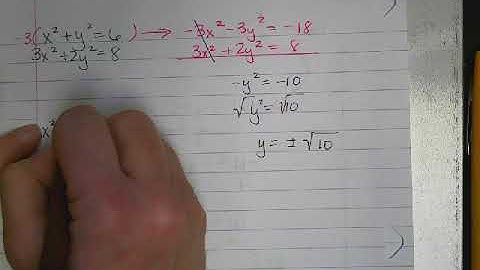 -3(x² + y² = 6) → -3x² - 3y² = -18
3x² + 2y² = 8 3x² + 2y² = 8
-y² = -10
√y² = √10
y = ± √10
x²